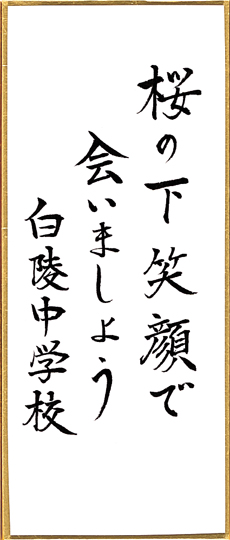 桜の下笑顔で
会いましょう
白陵中学校